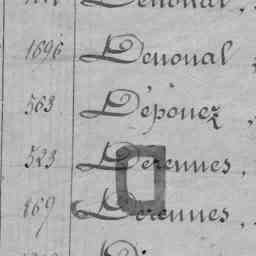 1696 Denoual,
563 Dépouez,
523 Derennes,
169 Derennes,